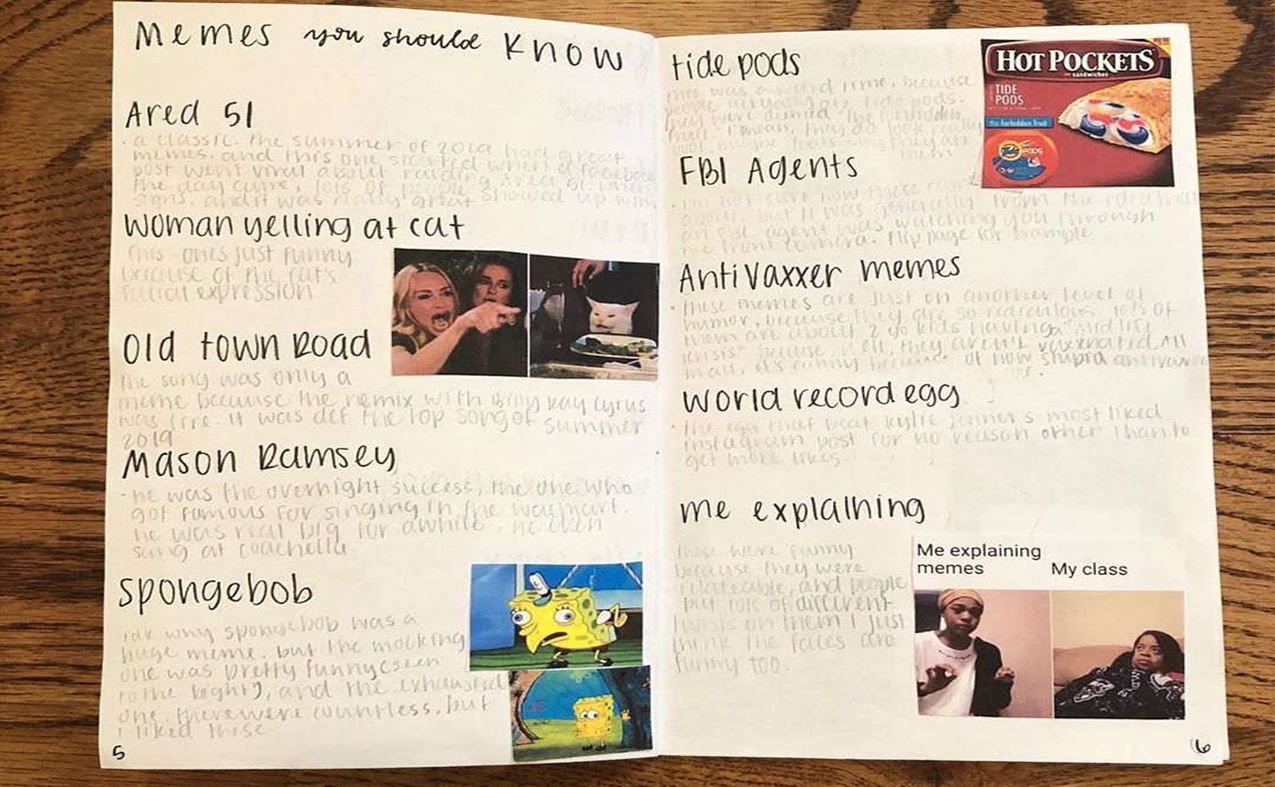 Memes you should know
Area 51
· a classic. the summer of 2019 had great
memes. and this one started when a facebook
post went viral about raiding Area 51. when
the day came, lots of people showed up with
signs. and it was really great
Woman yelling at cat
this ones just funny
because of the cat's
facial expression
Old town Road
the song was only a
meme because the remix with Billy Ray Cyrus
was fire. it was def the top song of summer
2019
Mason Ramsey
· he was the overnight success, the one who
got famous for singing in the walmart.
he was real big for awhile. he even
sang at coachella
Spongebob
idk why spongebob was a
huge meme, but the mocking
one was pretty funny (seen
to the right), and the exhausted
one. there were countless, but
i liked these
5
tide pods
this was a weird time, because
people actually ate tide pods.
they were dubbed "the forbidden
fruit." I mean, they do look really
HOT POCKETS
SANDWICHES
TIDE
PODS
the forbidden fruit
PODS
FBI Agents
· I'm not sure how these came
about, but it was generally from the idea that
an FBI agent was watching you through
the front camera. flip page for example
Antivaxxer memes
· these memes are just on another level of
humor, because they are so rediculous. lots of
them are about 2 yo kids having a "mid life
crisis" because well, they aren't vaxxnated. All
in all, it's funny because of how stupid
World record egg
· the egg that beat Kylie Jenner's most liked
instagram post for no reason other than to
get more likes.
me explaining
these were funny
because they were
relateable, and people
put lots of different
twists on them I just
think the faces are
funny too.
Me explaining
memes
My class
6